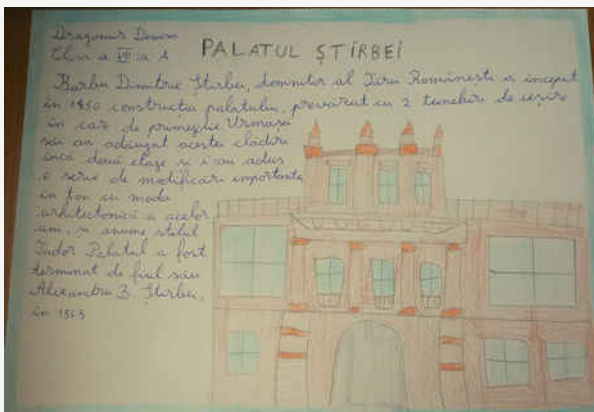 Dragomir Denisa
Clsa a VII a A
PALATUL ȘTIRBEI
Barbu Dimitrie Știrbei, domnitor al Țării Românești a început
în 1850 construcția palatului, prevăzut cu 2 tuneluri de ieșire
în caz de primejdie Urmașii
săi au adăugat acestei clădiri
încă două etaje și i-au adus
o serie de modificări importante
în ton cu moda
arhitectonică a acelor
ani, și anume stilul
Tudor Palatul a fost
terminat de fiul său
Alexandru B. Știrbei,
în 1863